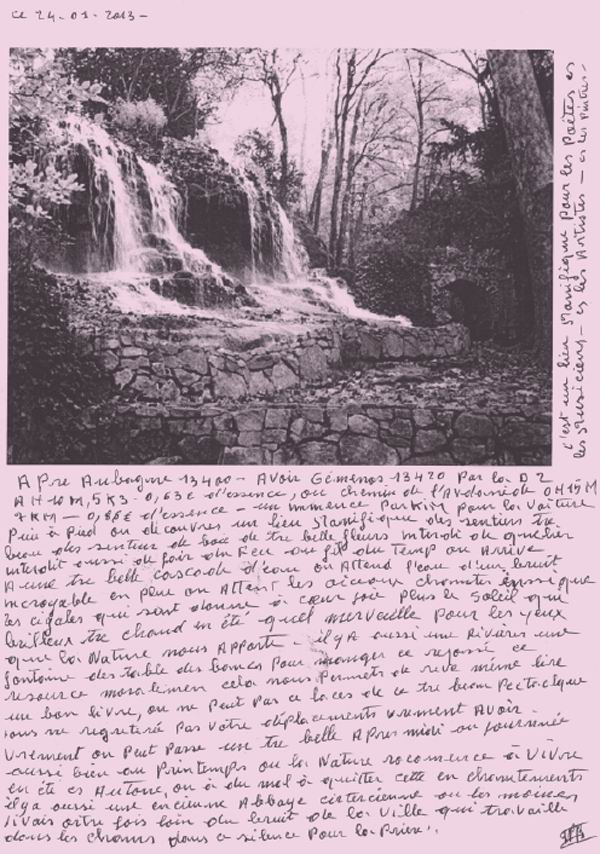 ce 24-01-2013-
c'est un lieu Manifique pour les Poêtes es
les Musiciens - es les Artistes - es les Peintres-
APre Aubagne 13400 - Avoir Gémenos 13420 Par la D2
A H 10 M,5 K3 - 0,63€ d'essence, ou chemin de l' 0H15M
7KM - 0,88€ d'essence - un immence Parkim pour la Voiture
Puis à Pied on découvres un lieu Manifique des sentiers tre
beau des sentier de bois de tre belle fleurs interdi de quelier
interdit aussi de foir du Feu au fil du temp on Arrive
A une tre belle cascade d'eau on Attend l'eau d'un bruit
incroyable en plus on Attent les oiceaux chanter
les cigales qui sont donne à cœur joie Plus le Soleil qui
brilleux tre chaud en été quel merveille pour les yeux
que la Nature nous Apporte il y A aussi une Rivières une
fontaine des table des bancs Pour manger ce reposé ce
resource moralemen cela nous Permets de reve même lire
un bon livre, on ne Peut Pas ce laces de ce tre beau Pectacque
vous ne regreteré Pas Votre déplacements vrement AVoir.
Vrement on Peut Passe un tre belle APres midi ou journnée
aussi bien au Printemps ou la Nature recomence à Vivre
en été es Autone, on à du mal à quitter cette en chantements
il y a aussi une encienne Abbaye cistercienne ou les moines
Vivais autre fois loin du bruit de la Ville qui travaille
dans les champs dans ce silence Pour la Prière.